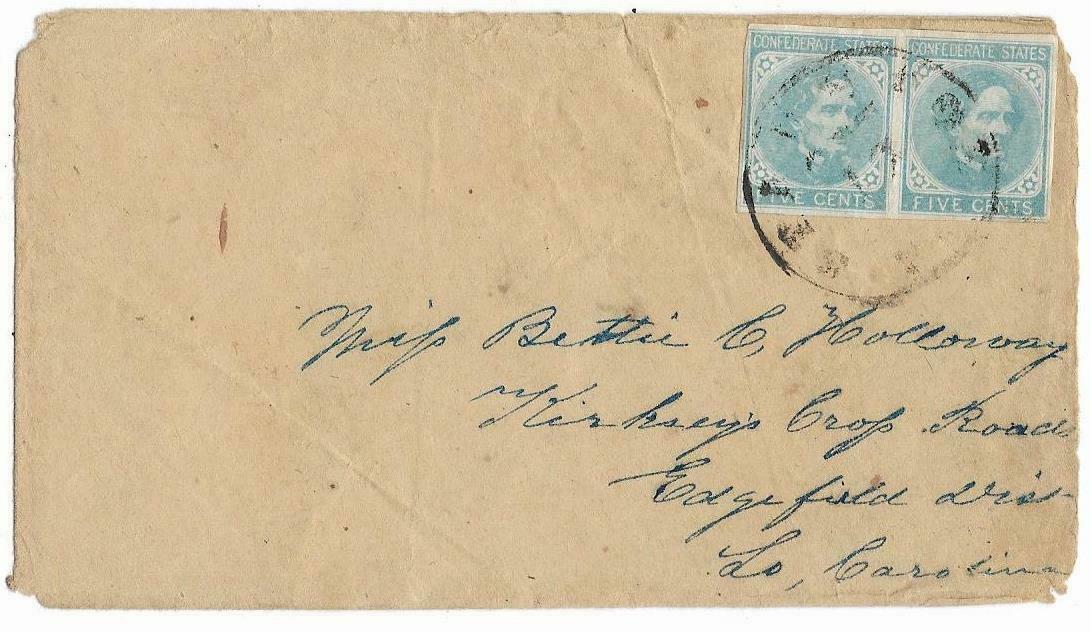 CONFEDERATE STATES CONFEDERATE STATES
FIVE CENTS FIVE CENTS
Miss Bettie C, Holloway
Kirksey's Cross Road
Edgefield Dist
So, Carolina